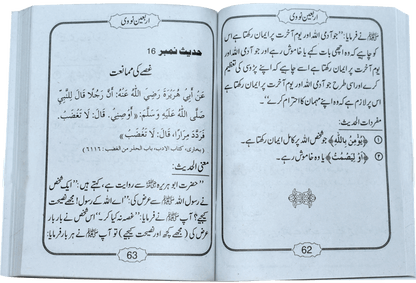 اربعین نووی
ﷺ نے فرمایا: ”جو آدمی اللہ اور یوم آخرت پر ایمان رکھتا ہے اس
کو چاہیے کہ وہ اچھی بات کہے یا خاموش رہے اور جو آدمی اللہ اور
یوم آخرت پر ایمان رکھتا ہے اسے چاہیے کہ اپنے پڑوسی کی تعظیم
کرے اور اسی طرح جو آدمی اللہ اور یوم آخرت پر ایمان رکھتا ہے
اس پر لازم ہے کہ وہ اپنے مہمان کا احترام کرے۔“
مفردات الحدیث:
① ﴿يُؤْمِنُ بِاللّٰهِ﴾ جو شخص اللہ پر کامل ایمان رکھتا ہے۔
② ﴿أَوْ لِيَصْمُتْ﴾ یا وہ خاموش رہے۔
62
اربعین نووی
حدیث نمبر 16
غصے کی ممانعت
عَنْ أَبِي هُرَيْرَةَ رَضِيَ اللّٰهُ عَنْهُ: أَنَّ رَجُلًا قَالَ لِلنَّبِيِّ
صَلَّى اللّٰهُ عَلَيْهِ وَسَلَّمَ: «أَوْصِنِي، قَالَ: لَا تَغْضَبْ،
فَرَدَّدَ مِرَارًا، قَالَ: لَا تَغْضَبْ»
(بخاری، کتاب الادب، باب الحذر من الغضب، ٦١١٦)
معنی الحدیث:
”حضرت ابو ہریرہ ؓ سے روایت ہے، کہتے ہیں: ”ایک شخص
نے رسول اللہ ﷺ سے عرض کی: ”اے اللہ کے رسول! مجھے نصیحت
کیجیے؟ آپ ﷺ نے فرمایا: ”غصہ نہ کیا کر۔“ اس شخص نے بار بار
عرض کی (مجھے کچھ اور نصیحت کیجیے) تو آپ ﷺ نے ہر بار فرمایا:
63